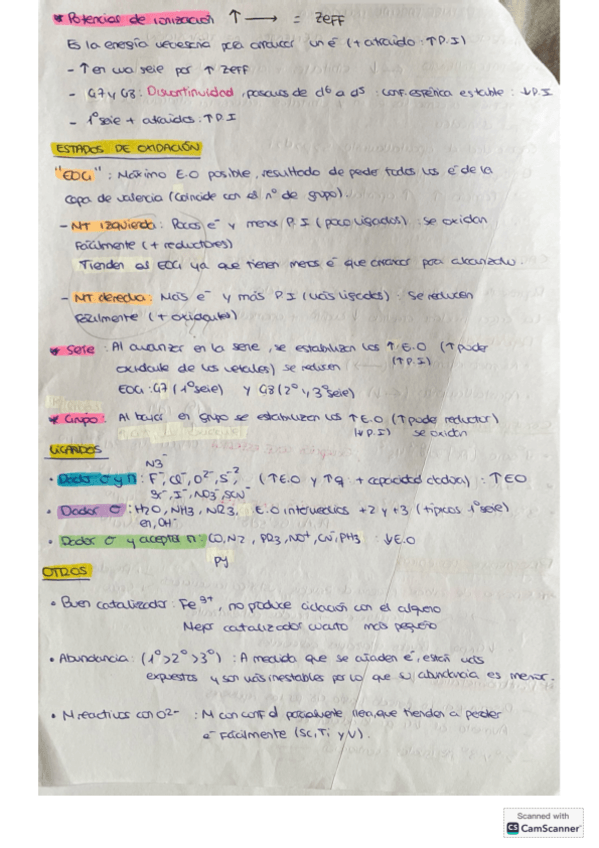 * Potencias de ionización ↑ ⟶ = Zeff
Es la energía necesaria para arrancar un é (+ atraido: ↑P.I)
- ↑ en una serie por ↑ Zeff
- G7 y G8: Discontinuidad, pasamos de d⁶ a d⁵: conf. esférica estable: ↓P.I
- 1ª serie + atraidos: ↑P.I
ESTADOS DE OXIDACIÓN
"EOG": Máximo E.O posible, resultado de perder todos los é de la
capa de valencia (Coincide con el nº de grupo).
- MT izquierda: Pocos e⁻ y menor P.I (poco ligados): se oxidan
Fácilmente (+ reductores)
Tienden al EOG ya que tienen menos é que arrancar para alcanzarlo.
- MT derecha: Más e⁻ y más P.I (más ligados): Se reducen
Fácilmente (+ oxidantes)
* Serie: Al avanzar en la serie, se estabilizan los ↑E.O (↑poder
oxidante de los metales) se reducen (↑P.I)
EOG: G7 (1ª serie) y G8 (2ª y 3ª serie)
* Grupo: Al bajar en grupo se estabilizan los ↑E.O (↑poder reductor)
(↓P.I) se oxidan
LIGANDOS
N3⁻
• Dador σ y π: F⁻, Cl⁻, O²⁻, S⁻² (↑E.O y ↑q: + capacidad dadora): ↑EO
Br⁻, I⁻, NO3⁻, SCN⁻
• Dador σ: H2O, NH3, NR3, E.O intermedios +2 y +3 (típicos 1ª serie)
en, OH⁻
• Dador σ y aceptor π: CO, N2, PR3, NO⁺, CN⁻, PH3 : ↓E.O
Py
OTROS
• Buen catalizador: Fe³⁺, no produce ciclación con el alqueno
Mejor catalizador cuanto más pequeño
• Abundancia: (1º>2º>3º): A medida que se añaden é, están más
expuestos y son más inestables por lo que su abundancia es menor.
• M reactivos con O²⁻ : M con conf d parcialmente llena, que tienden a perder
e⁻ Fácilmente (Sc, Ti y V).
Scanned with
CS CamScanner